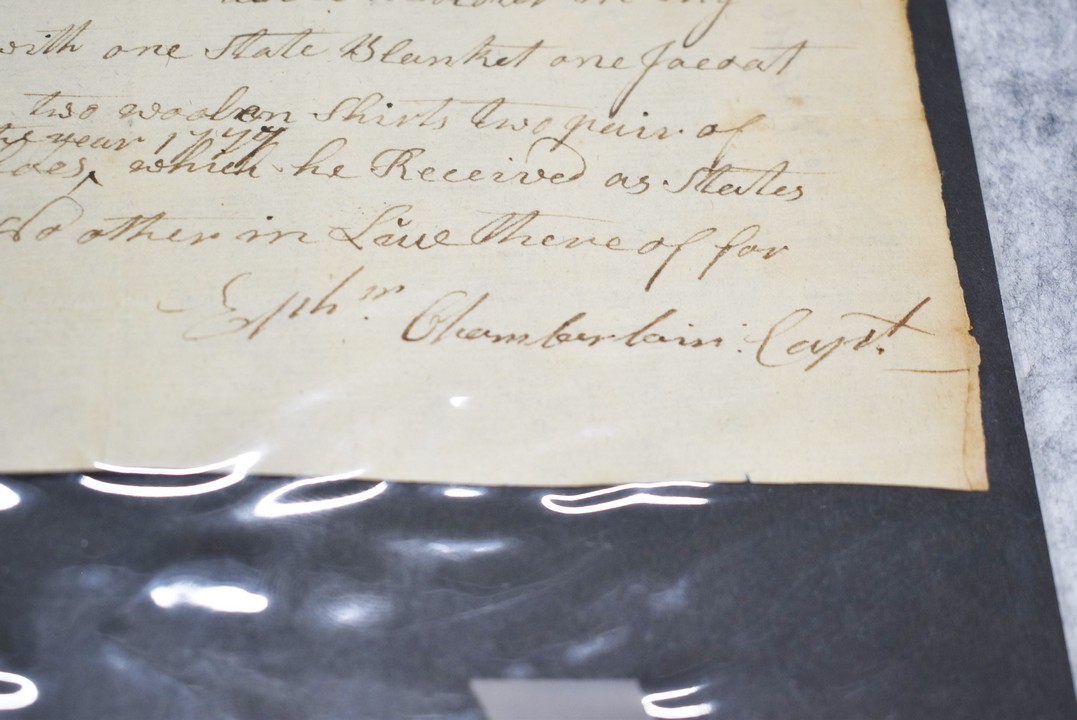 with one State Blanket one Jacoat
two woolen Shirts two pair of
year 1777
which he Received as States
No other in Liue there of for
Ephm. Chamberlain: Capt.